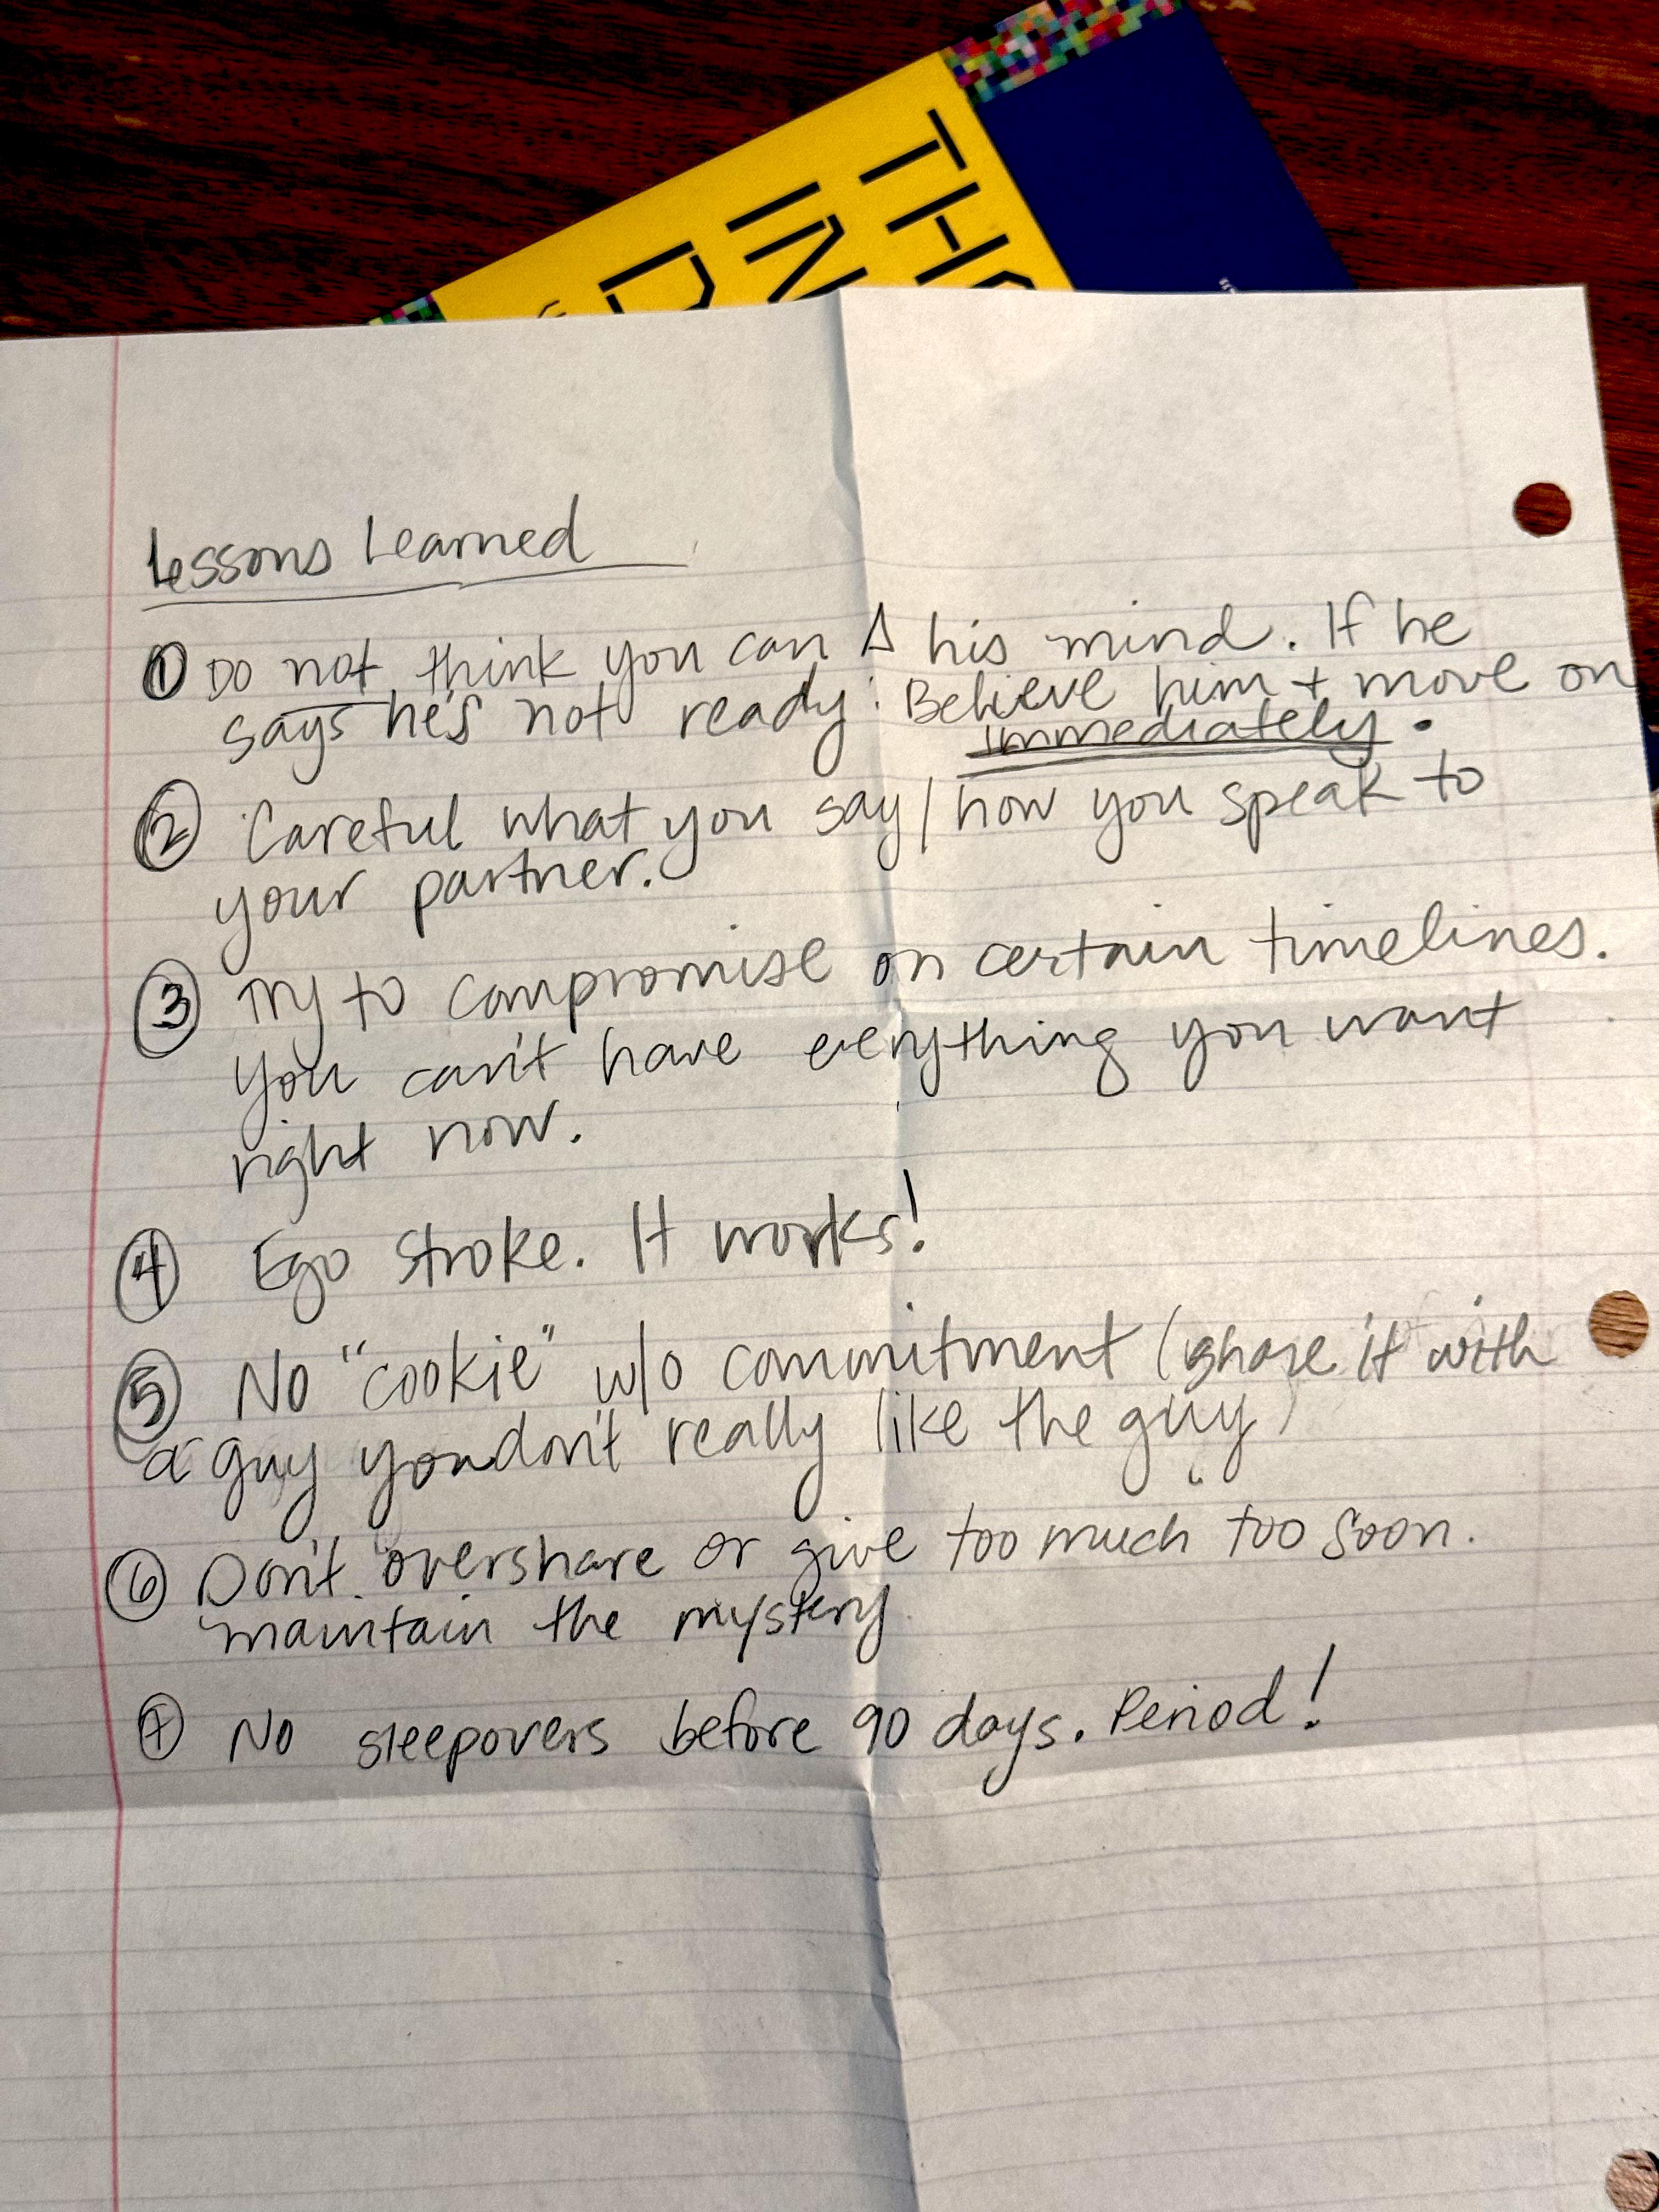 TH
IN
D
Lessons Learned
① Do not think you can Δ his mind. If he
says he's not ready: Believe him + move on
immediately.
② Careful what you say/how you speak to
your partner.
③ Try to compromise on certain timelines.
You can't have everything you want
right now.
④ Ego stroke. It works!
⑤ No "cookie" w/o commitment (share it with
a guy you don't really like the guy)
⑥ Don't overshare or give too much too soon.
maintain the mystery
⑦ No sleepovers before 90 days. Period!